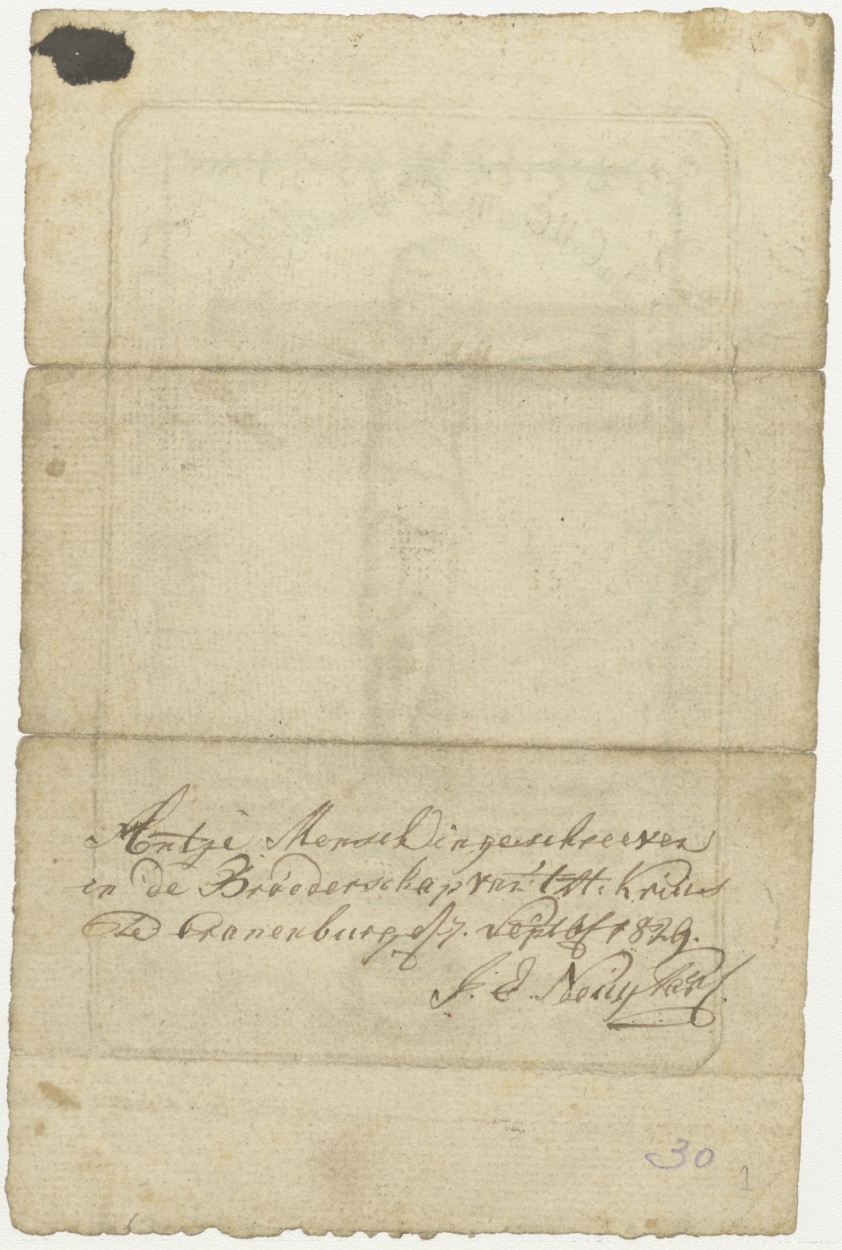 Antje Mensch ingeschreeven
in de Brooderschap van 't H. Krius
te Cranenburg d 7. Sept 1829.
J. E.
30
1